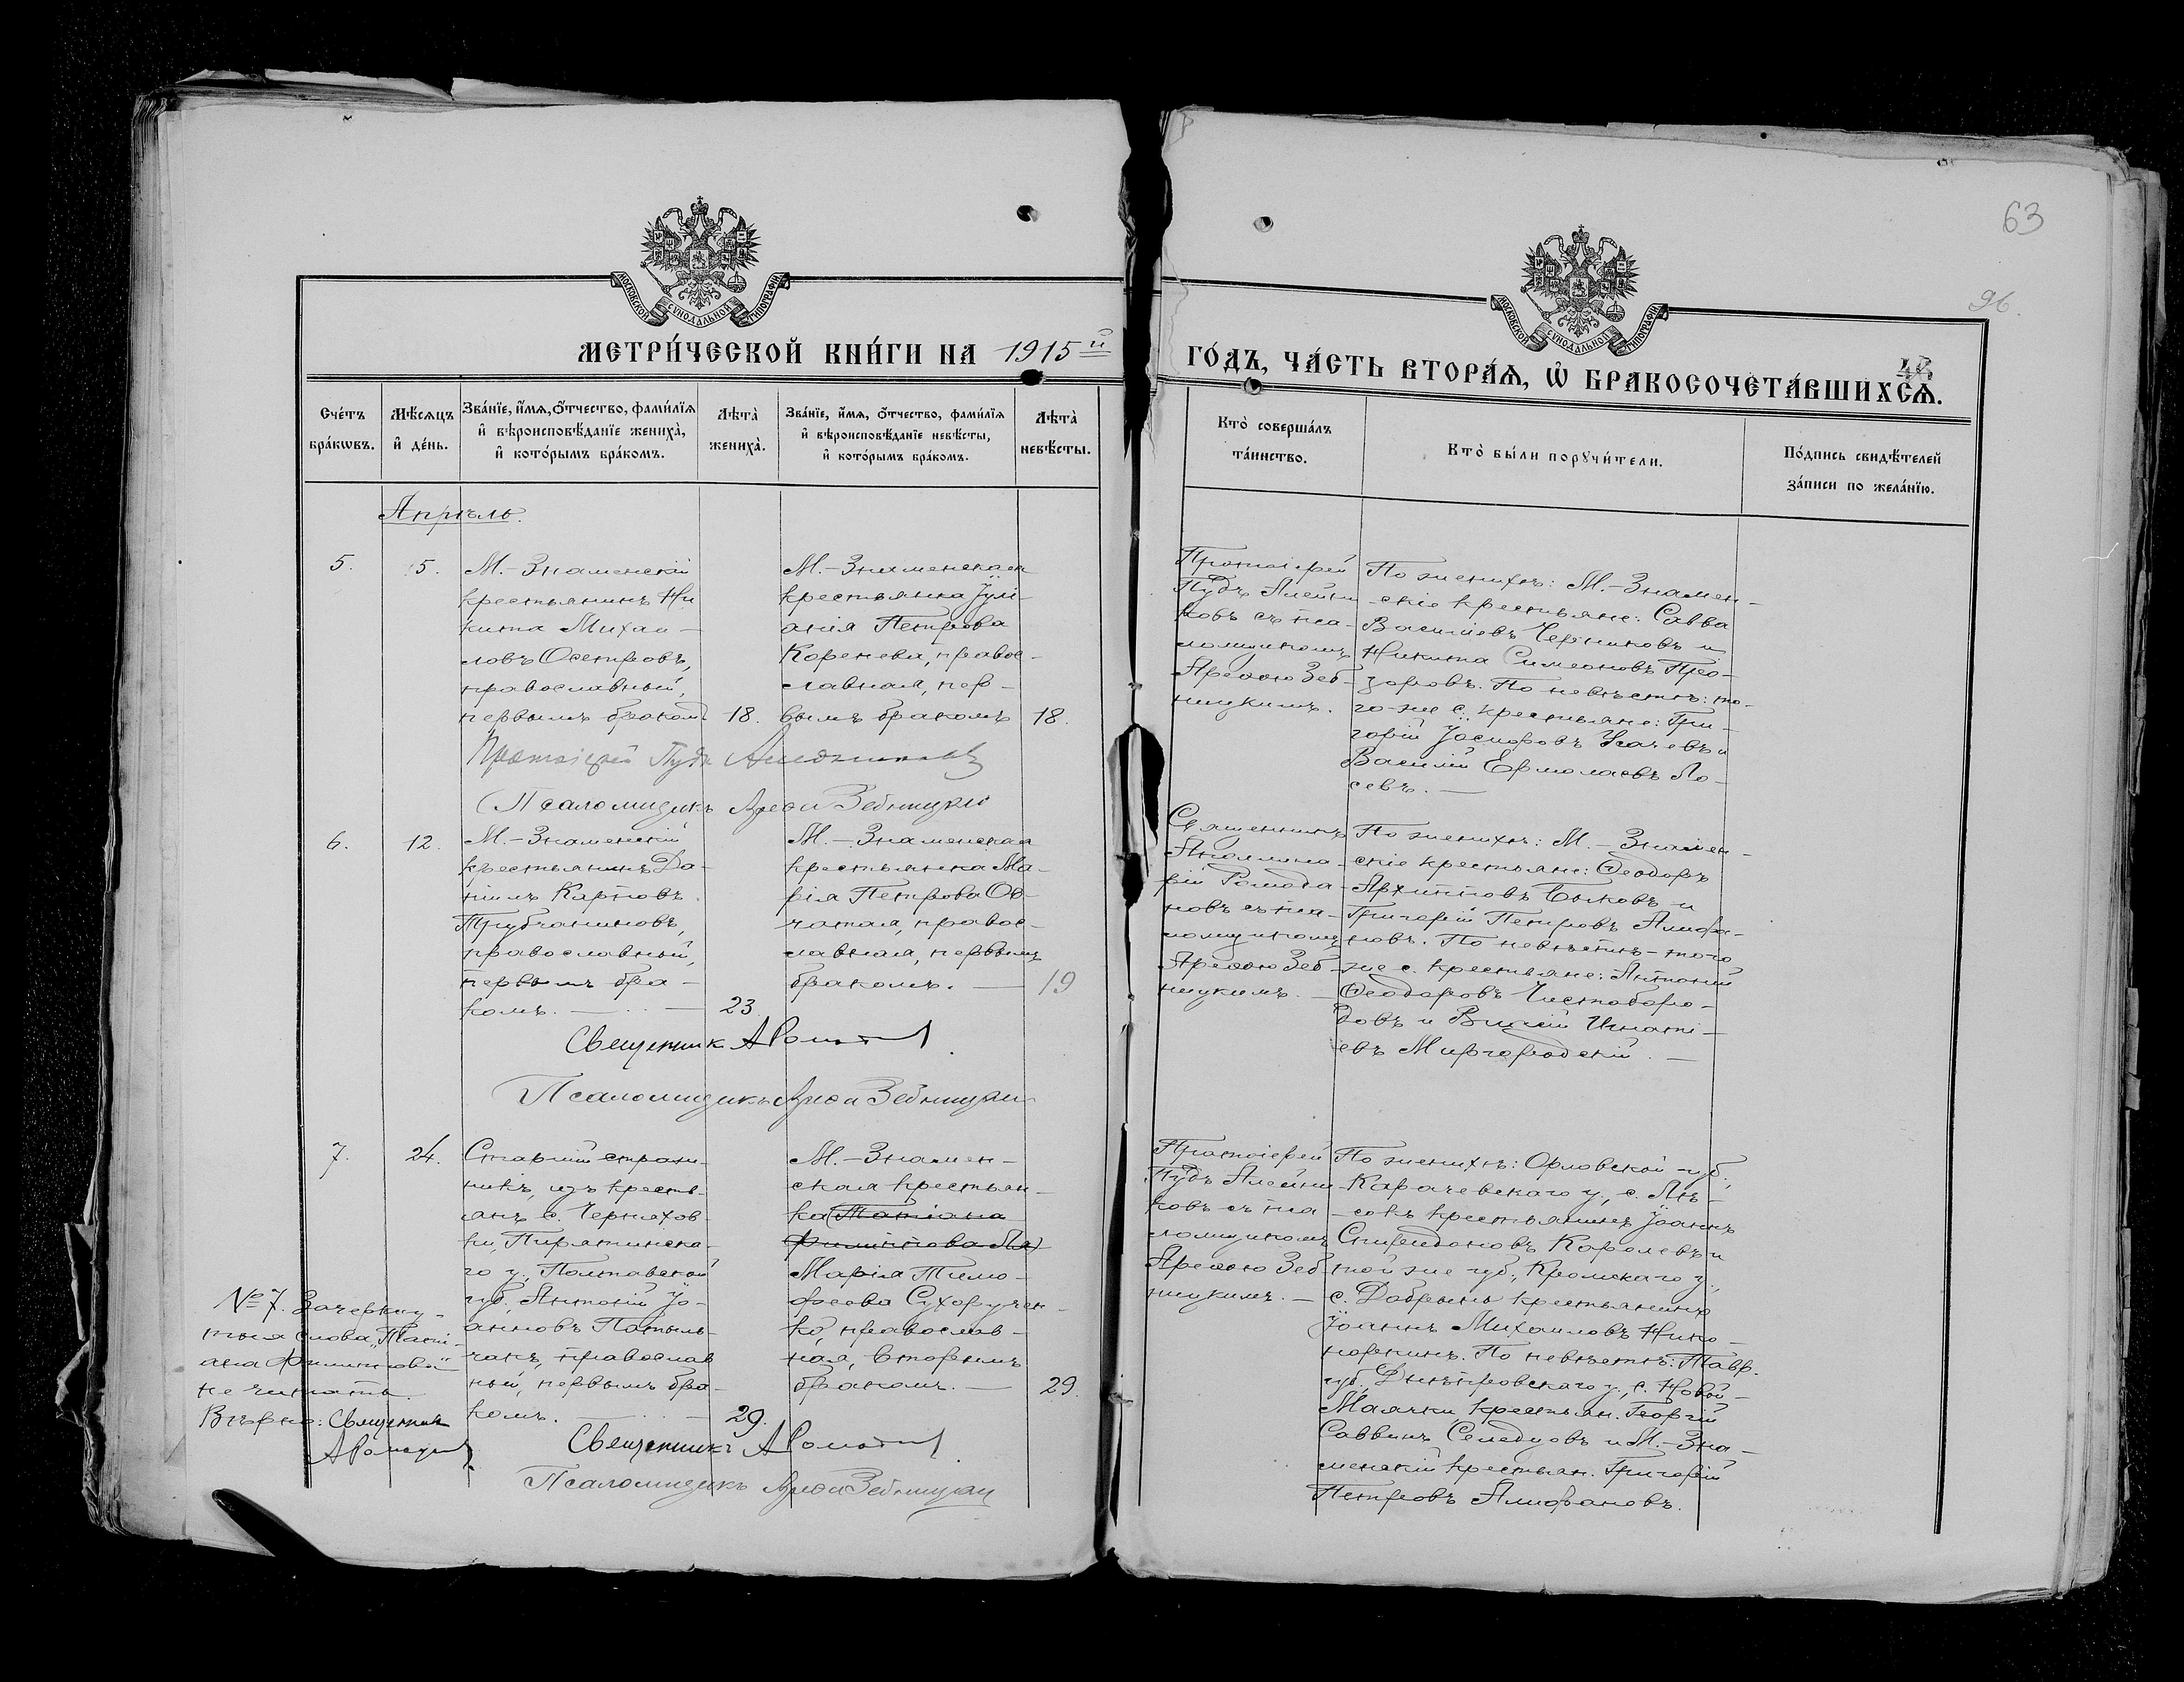 63
96.
МОСКОВСКОЙ СѴНОДАЛЬНОЙ ТИПОГРАФІИ
МОСКОВСКОЙ СѴНОДАЛЬНОЙ ТИПОГРАФІИ
МЕТРИ́ЧЕСКОЙ КНИ́ГИ НА 1915й
ГО́ДЪ, ЧА́СТЬ ВТОРА́Ѧ, Ѡ҆ БРАКОСОЧЕТА́ВШИХСѦ.
Сче́тъ бра́кωвъ.
Мѣ́сяцъ и҆ де́нь.
Зва́нїе, и҆́мѧ, ѻ҆́тчество, фами́лїѧ
и҆ вѣроисповѣ́данїе жениха̀,
и҆ кото́рымъ бра́комъ.
Лѣта̀ жениха̀.
Зва́нїе, и҆́мѧ, ѻ҆́тчество, фами́лїѧ
и҆ вѣроисповѣ́данїе невѣ́сты,
и҆ кото́рымъ бра́комъ.
Лѣта̀ невѣ́сты.
Кто̀ соверша́лъ та́инство.
Кто̀ бы́ли порꙋчи́тели.
По́дпись свидѣ́телей
за́писи по жела́нїю.
Апрѣль.
5.
5.
М.-Знаменскій
крестьянинъ Ни
кита Михаи-
ловъ Осетровъ,
православный,
первымъ бракомъ
18.
М.-Знаменская
крестьянка Іулі-
анія Петрова
Коренева, правос-
лавная, пер-
вымъ бракомъ
18.
Протоіерей
Пудъ Алейни
ковъ съ пса-
ломщикомъ
Арефою Зеб-
ницкимъ.
По женихѣ: М.-Знамен-
скіе крестьяне: Савва
Васильевъ Черниковъ и
Никита Симеоновъ Про-
зоровъ. По невѣстѣ: то-
го-же с. крестьяне: Гри-
горій Іосифовъ Усачевъ и
Василій Ермолаевъ Ло-
севъ.
Протоіерей Пудъ Алейниковъ
Псаломщикъ Арефа Зебницкій
6.
12.
М.-Знаменскій
крестьянинъ Да-
ніилъ Карповъ
Трубчаниновъ,
православный,
первымъ бра-
комъ.
23.
М.-Знаменская
крестьянка Ма-
рія Петрова Ов-
чатая, правос-
лавная, первымъ
бракомъ.
19
Священникъ
Аполлина-
рій Ромода-
новъ съ пса-
ломщикомъ
Арефою Зеб-
ницкимъ.
По женихѣ: М.-Знамен-
скіе крестьяне: Ѳеодоръ
Архиповъ Быковъ и
Григорій Петровъ Алифа-
новъ. По невѣстѣ-того
же с. крестьяне: Антоній
Ѳеодоровъ Чистоборо-
довъ и Василій Игнаті-
евъ Миргородскій.
Священникъ А Ромод
Псаломщикъ Арефа Зебницкій
7.
24.
Старшій страж-
никъ, изъ кресть-
янъ с. Черняхов-
ки, Пирятинска-
го у., Полтавской
губ., Антоній Іо-
анновъ Потыль-
чакъ, православ
ный, первымъ бра-
комъ.
29.
М.-Знамен-
ская крестьян-
ка (Татіана
Филиппова Ля)
Марія Тимо-
феева Сухоручен-
ко, православ-
ная, вторымъ
бракомъ.
29.
Протоіерей
Пудъ Алейни
ковъ съ пса-
ломщикомъ
Арефою Зеб-
ницкимъ.
По женихѣ: Орловской губ.,
Карачевскаго у., с. Лѣ-
совъ крестьянинъ Іоаннъ
Спиридоновъ Королевъ и
той же губ., Кромскаго у.,
с. Добрынь крестьянинъ
Іоаннъ Михаиловъ Нико-
норкинъ. По невѣстѣ: Тавр.
губ. Днѣпровскаго у., с. Новой-
Маячки, крестьян. Георгій
Саввинъ Селедцовъ и М.-Зна-
менскій крестьян. Григорій
Петровъ Алифановъ.
№ 7. Зачеркну-
тыя слова „Таті-
ана Филиппова"
не читать.
Вѣрно: Священникъ
А Ромод
Священникъ А Ромод
Псаломщикъ Арефа Зебницкій